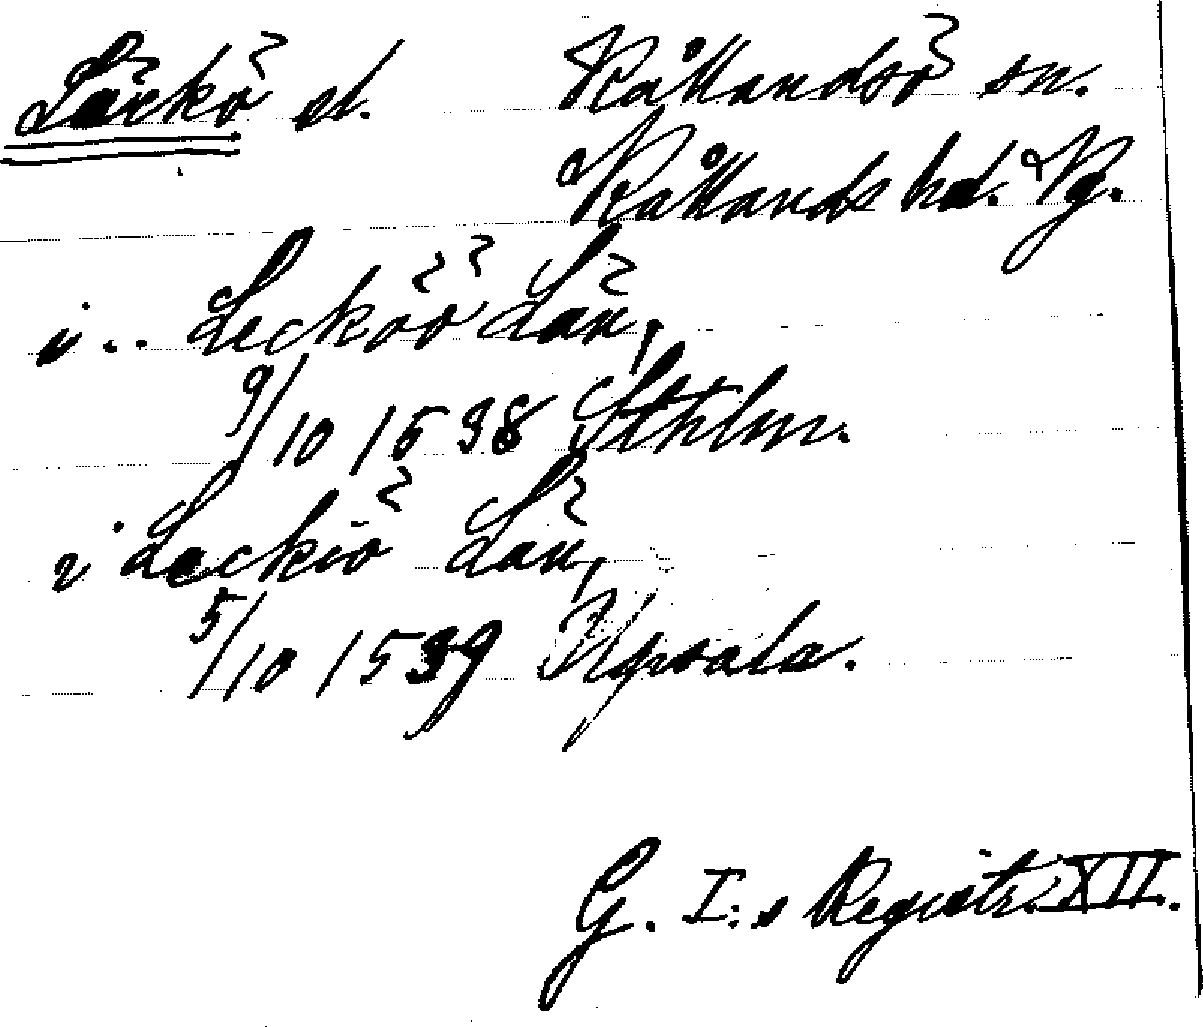 Läckö sl. Kållandsö sn.
Kållands hd. Vg.
i .. Lecköö Län,
9/10 1538 Sthlm.
i Leckiö Län,
5/10 1539 Upsala.
G. I:s Registr. XII.